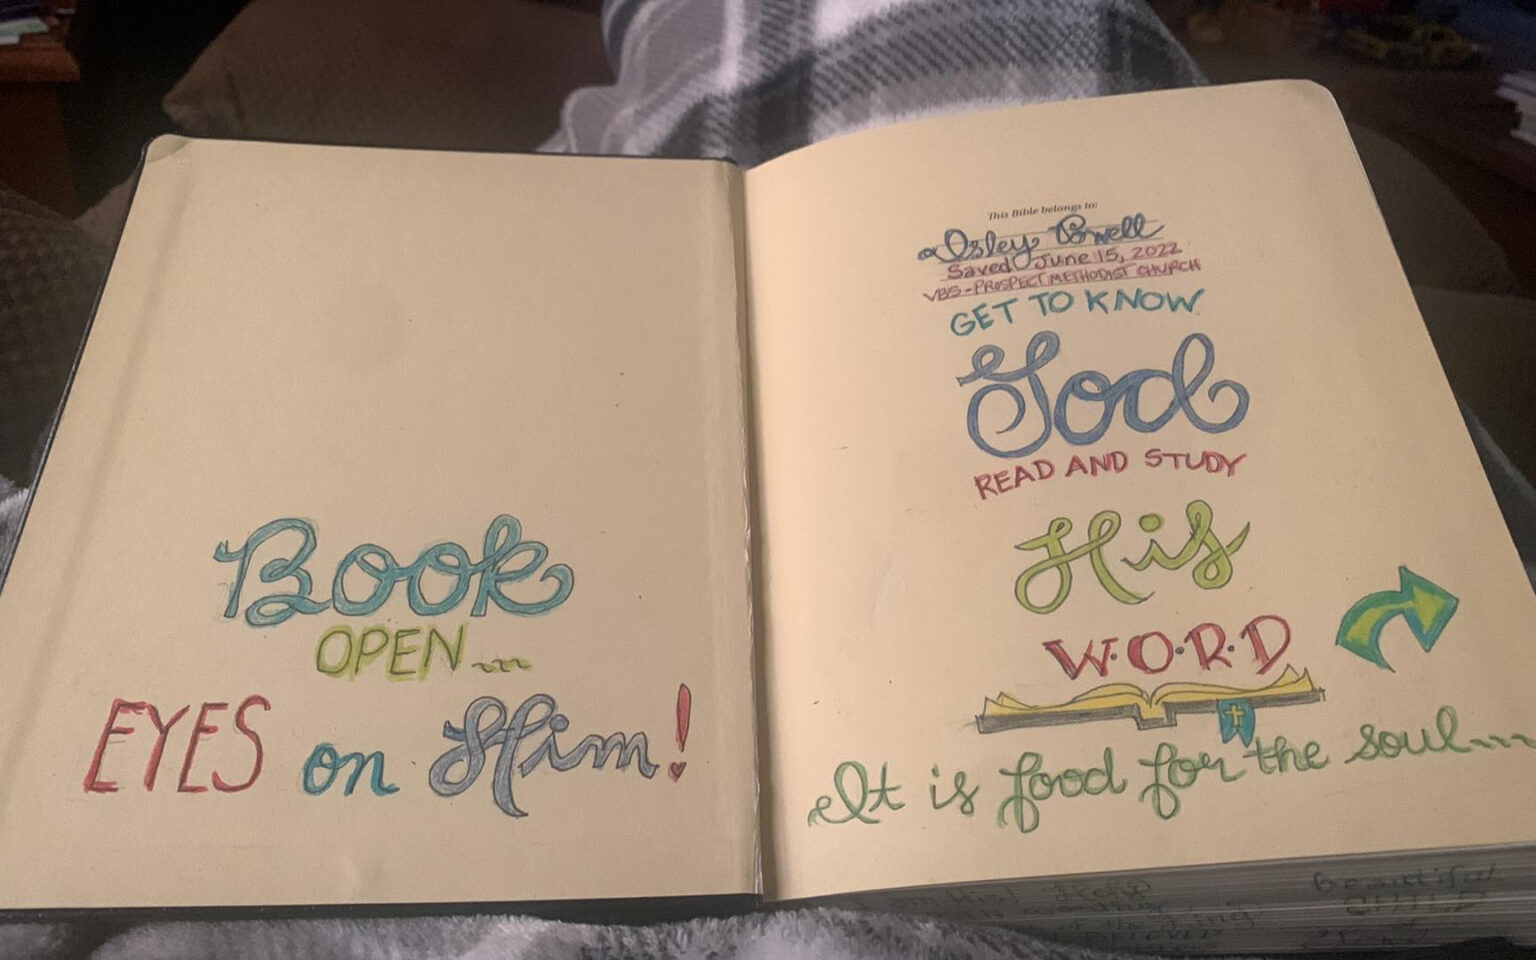 Book
OPEN...
EYES on Him!
This Bible belongs to:
Isley Powell
Saved June 15, 2022
VBS-PROSPECT METHODIST CHURCH
GET TO KNOW
God
READ AND STUDY
His
W.O.R.D
It is food for the soul...
Beautiful
CHILD
of
BELOVED